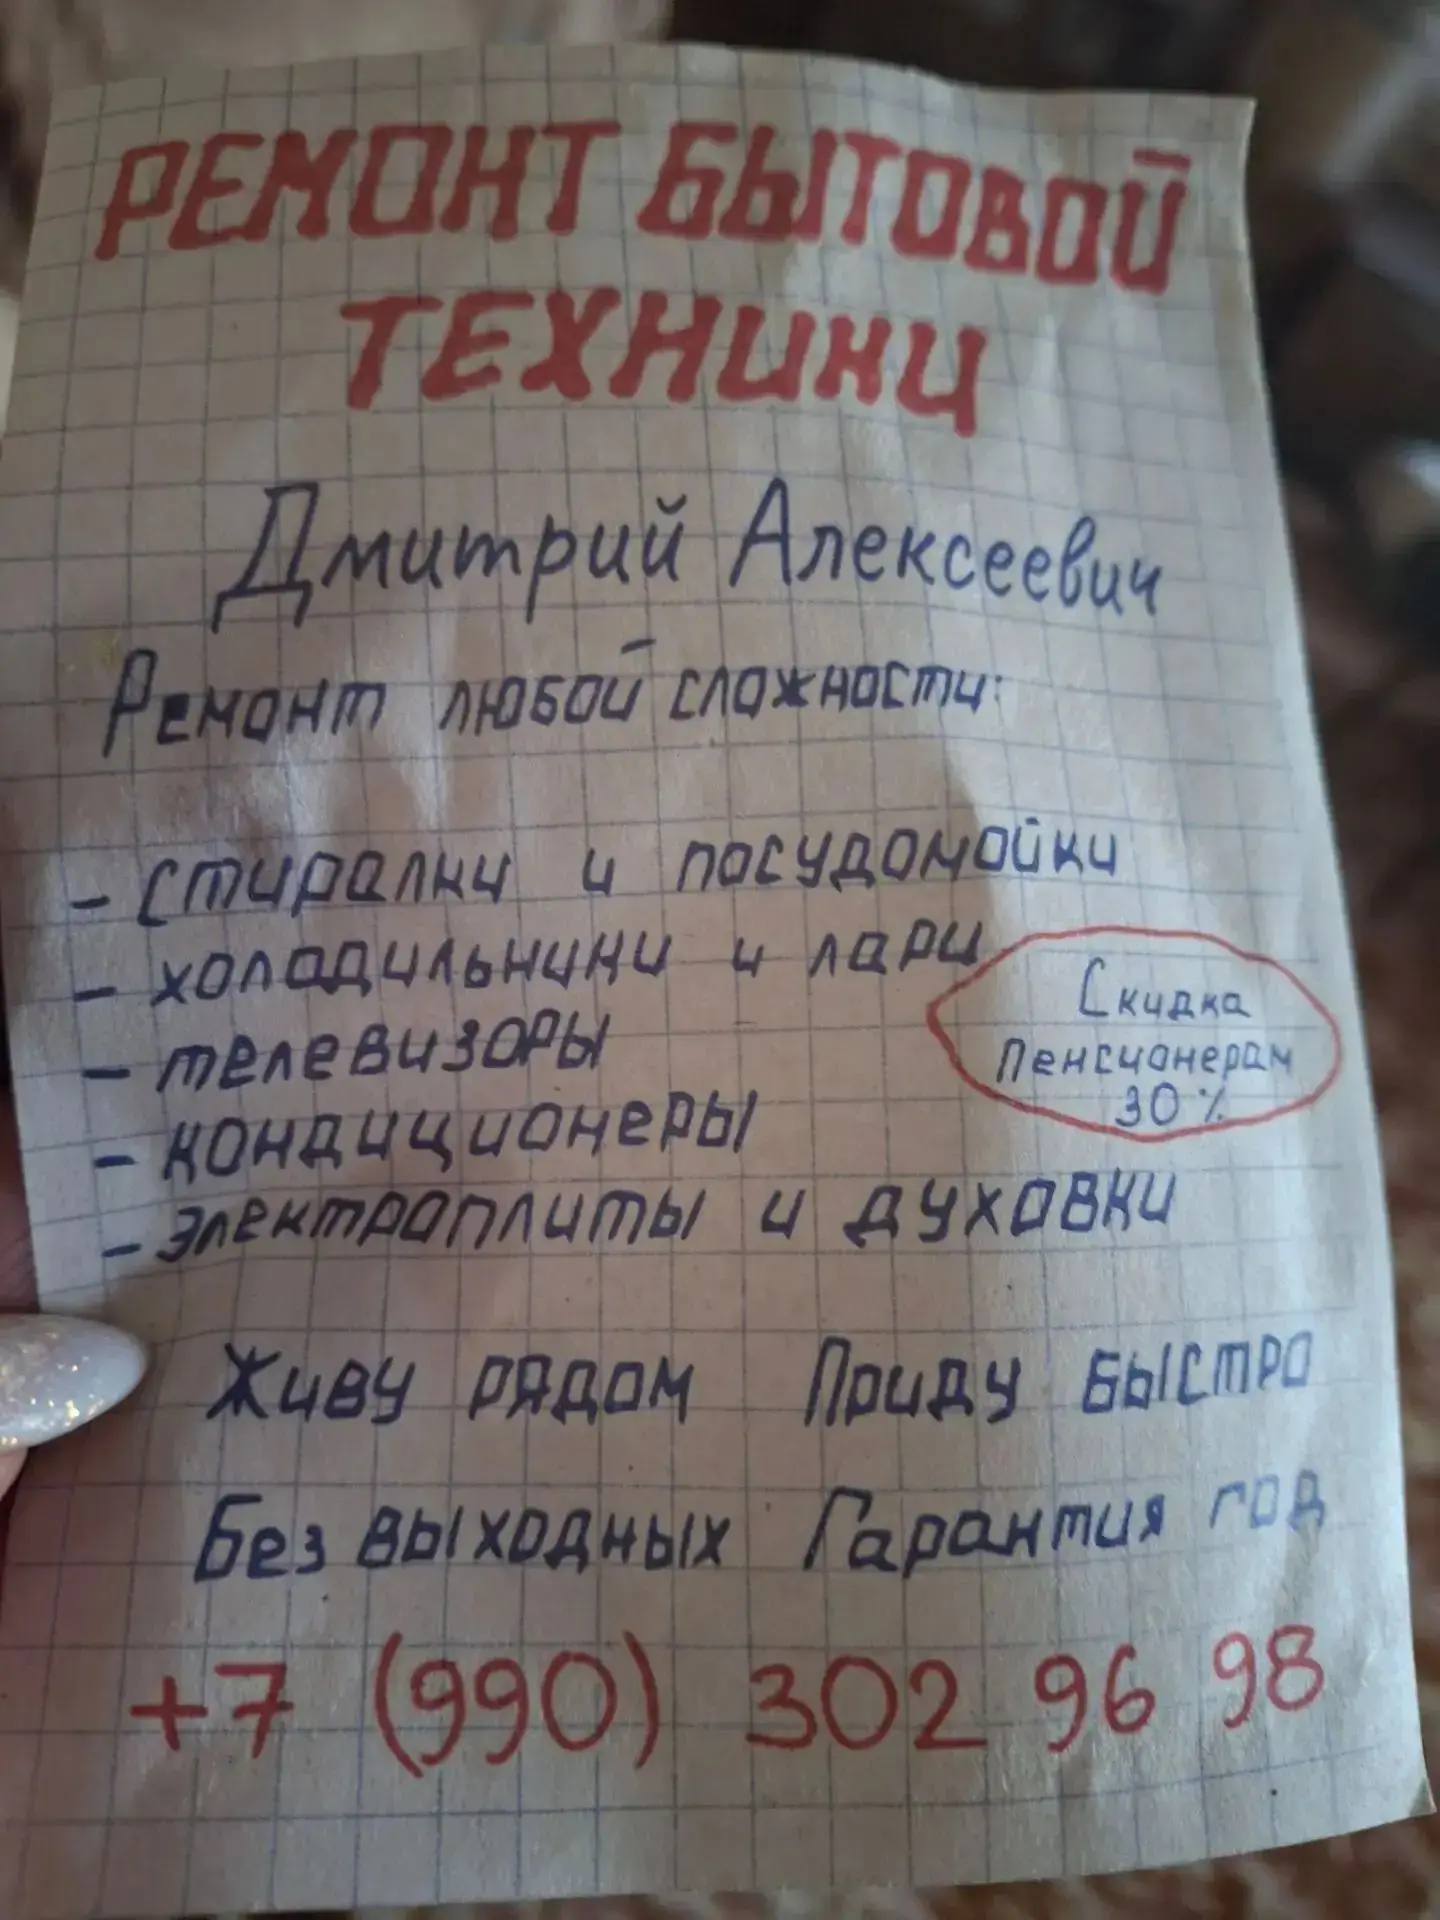 РЕМОНТ БЫТОВОЙ
ТЕХНИКИ
Дмитрий Алексеевич
Ремонт любой сложности:
- стиралки и посудомойки
- холодильники и лари
- телевизоры
- кондиционеры
- электроплиты и духовки
Скидка
Пенсионерам
30%
Живу рядом Приду быстро
Без выходных Гарантия год
+7 (990) 302 96 98